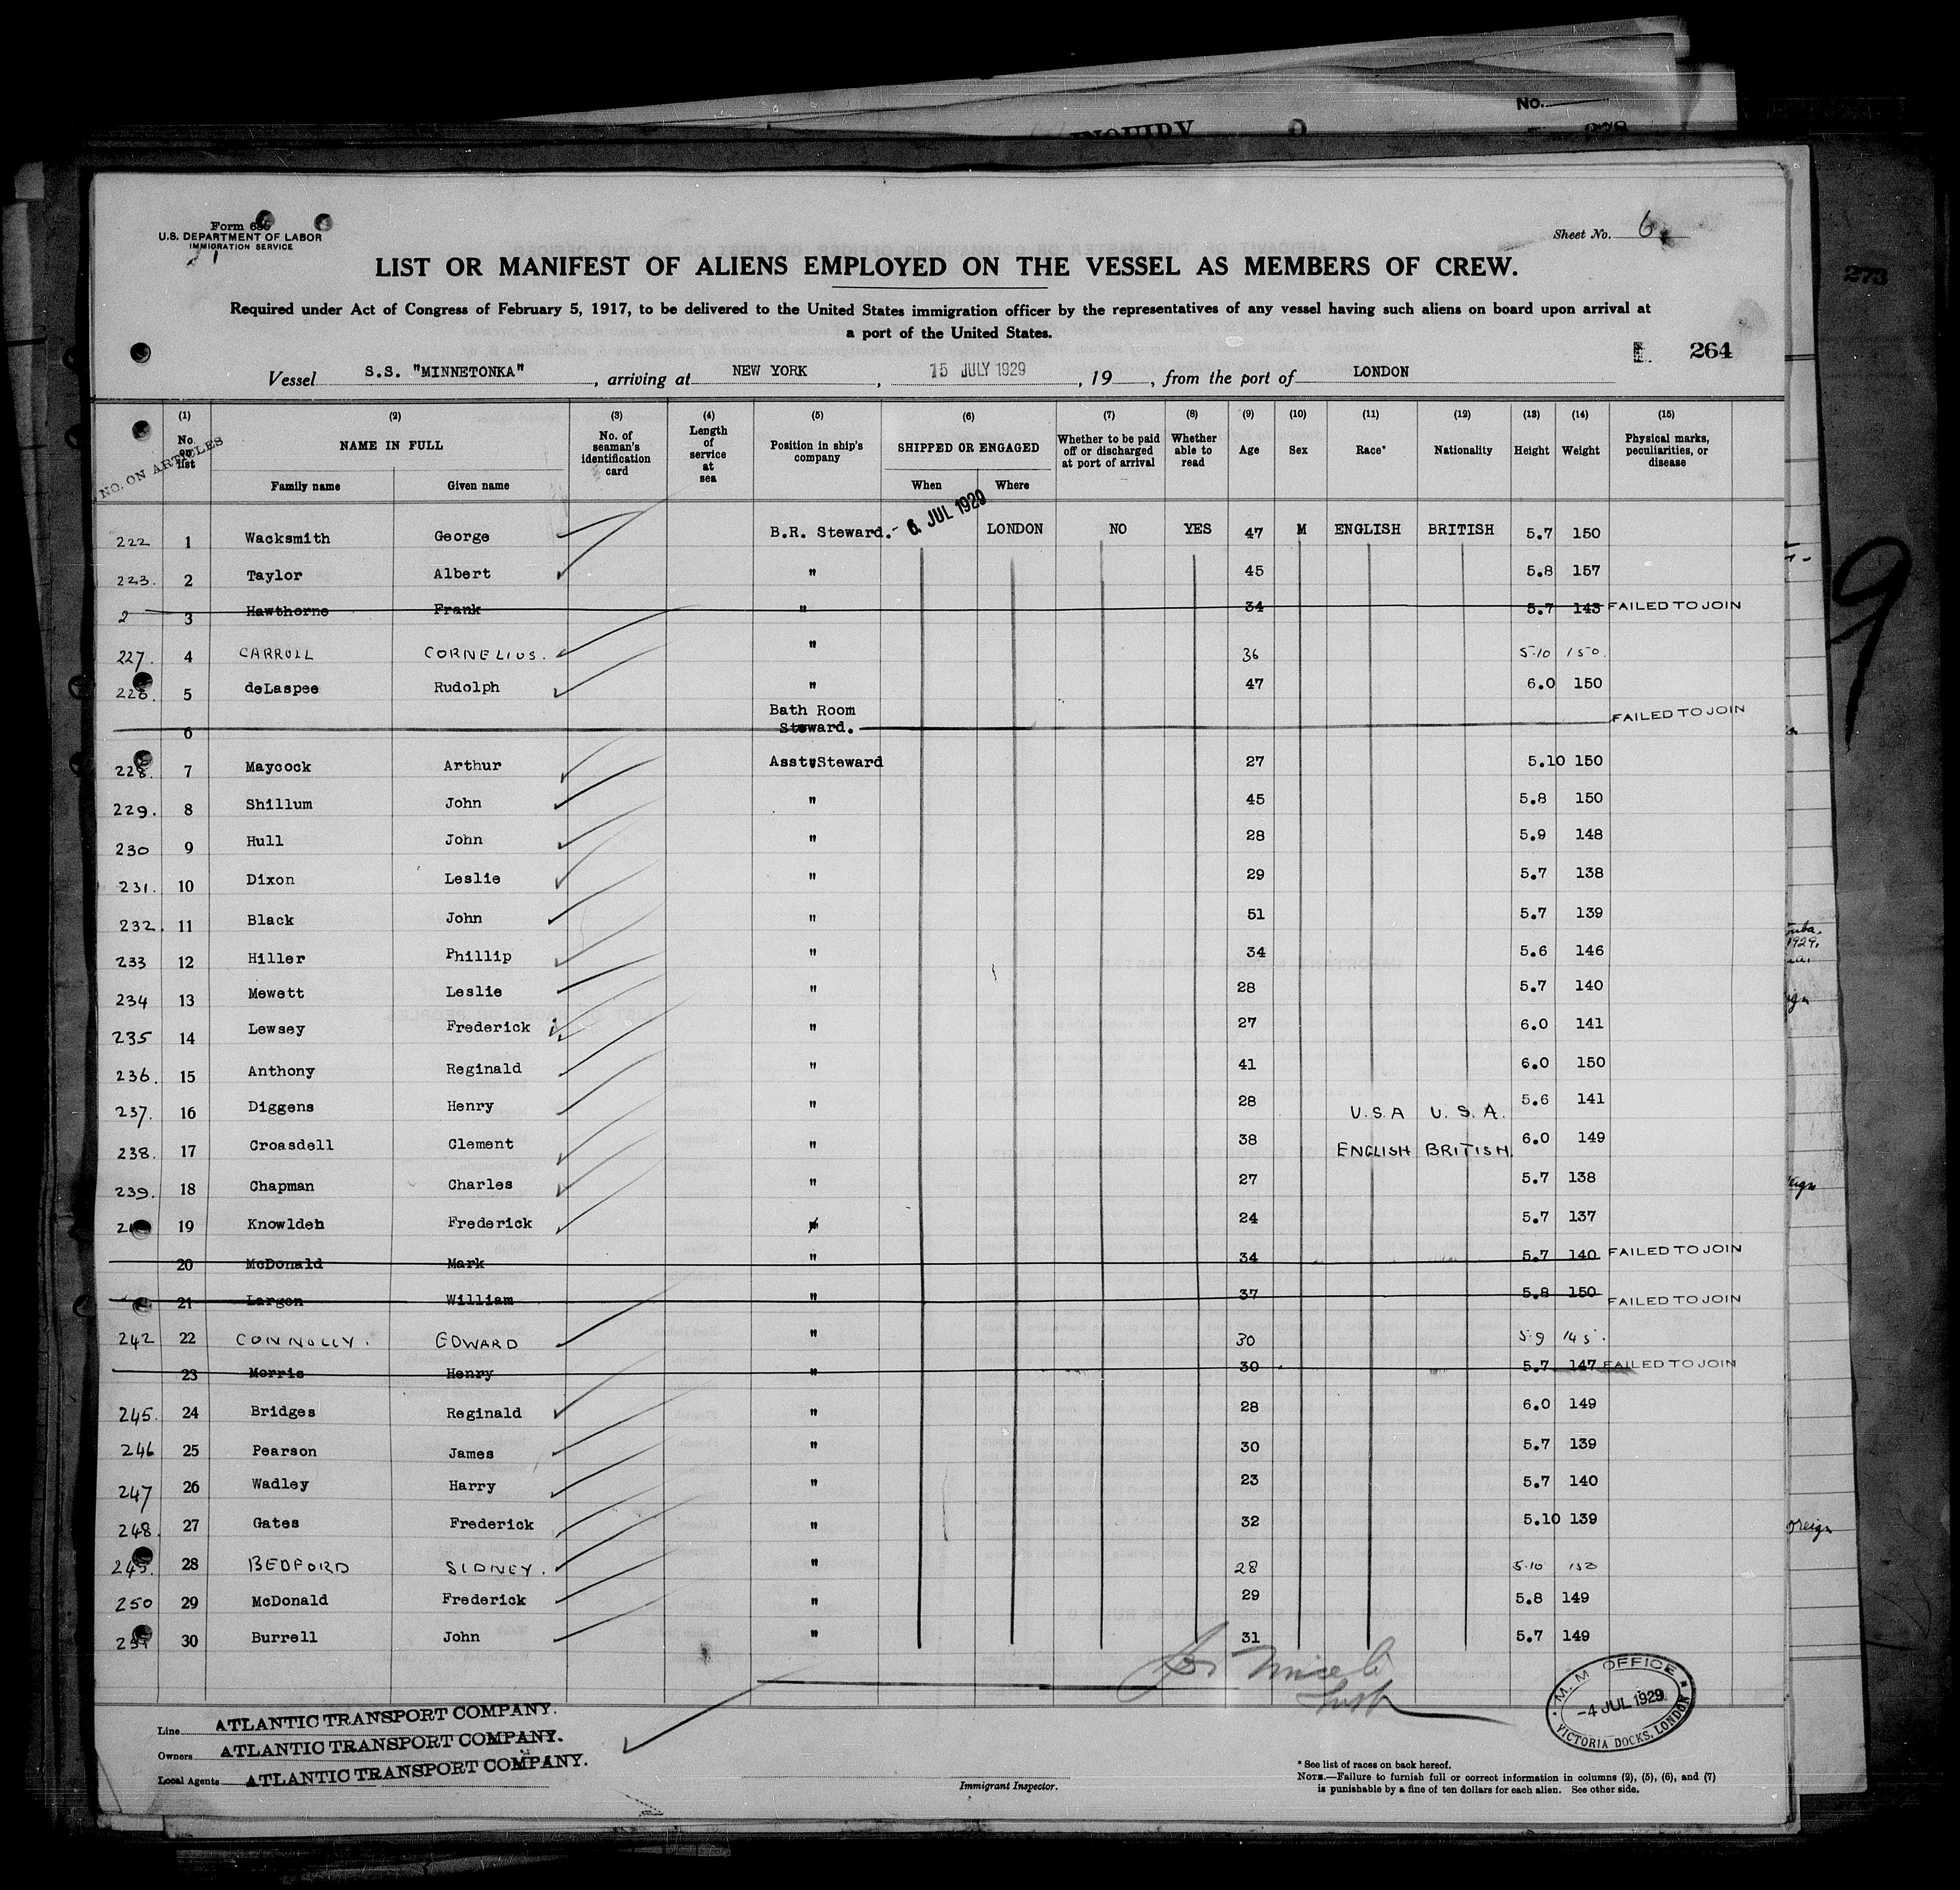 No.
INQUIRY
278
273
Form 680
U.S. DEPARTMENT OF LABOR
IMMIGRATION SERVICE
Sheet No. 6
LIST OR MANIFEST OF ALIENS EMPLOYED ON THE VESSEL AS MEMBERS OF CREW.
Required under Act of Congress of February 5, 1917, to be delivered to the United States immigration officer by the representatives of any vessel having such aliens on board upon arrival at
a port of the United States.
264
Vessel S.S. "MINNETONKA", arriving at NEW YORK, 15 JULY 1929, 19, from the port of LONDON
NO. ON ARTICLES
(1) No. on list (2) NAME IN FULL Family name Given name (3) No. of seaman's identification card (4) Length of service at sea (5) Position in ship's company (6) SHIPPED OR ENGAGED When Where (7) Whether to be paid off or discharged at port of arrival (8) Whether able to read (9) Age (10) Sex (11) Race* (12) Nationality (13) Height (14) Weight (15) Physical marks, peculiarities, or disease
222 1 Wacksmith George B.R. Steward. - 6 JUL 1929 LONDON NO YES 47 M ENGLISH BRITISH 5.7 150
223. 2 Taylor Albert " 45 5.8 157
2 3 Hawthorne Frank " 34 5.7 143 FAILED TO JOIN
227. 4 CARROLL CORNELIUS. " 36 5.10 150.
228. 5 deLaspee Rudolph " 47 6.0 150
6 Bath Room Steward. FAILED TO JOIN
228. 7 Maycock Arthur Asst. Steward 27 5.10 150
229. 8 Shillum John " 45 5.8 150
230 9 Hull John " 28 5.9 148
231. 10 Dixon Leslie " 29 5.7 138
232. 11 Black John " 51 5.7 139
233 12 Hiller Phillip " 34 5.6 146
234 13 Mewett Leslie " 28 5.7 140
235 14 Lewsey Frederick " 27 6.0 141
236. 15 Anthony Reginald " 41 6.0 150
237. 16 Diggens Henry " 28 U.S.A U.S.A. 5.6 141
238. 17 Croasdell Clement " 38 ENGLISH BRITISH. 6.0 149
239. 18 Chapman Charles " 27 5.7 138
19 Knowlden Frederick " 24 5.7 137
20 McDonald Mark " 34 5.7 140 FAILED TO JOIN
21 Largen William " 37 5.8 150 FAILED TO JOIN
242 22 CONNOLLY. EDWARD " 30 5.9 145.
23 Morris Henry " 30 5.7 147 FAILED TO JOIN
245. 24 Bridges Reginald " 28 6.0 149
246 25 Pearson James " 30 5.7 139
247 26 Wadley Harry " 23 5.7 140
248. 27 Gates Frederick " 32 5.10 139
249. 28 BEDFORD SIDNEY. " 28 5.10 150
250 29 McDonald Frederick " 29 5.8 149
251 30 Burrell John " 31 5.7 149
Line ATLANTIC TRANSPORT COMPANY.
Owners ATLANTIC TRANSPORT COMPANY.
Local Agents ATLANTIC TRANSPORT COMPANY.
Immigrant Inspector.
M. M. OFFICE
-4 JUL 1929
VICTORIA DOCKS, LONDON
* See list of races on back hereof.
NOTE.—Failure to furnish full or correct information in columns (2), (5), (6), and (7)
is punishable by a fine of ten dollars for each alien. See other side.
9